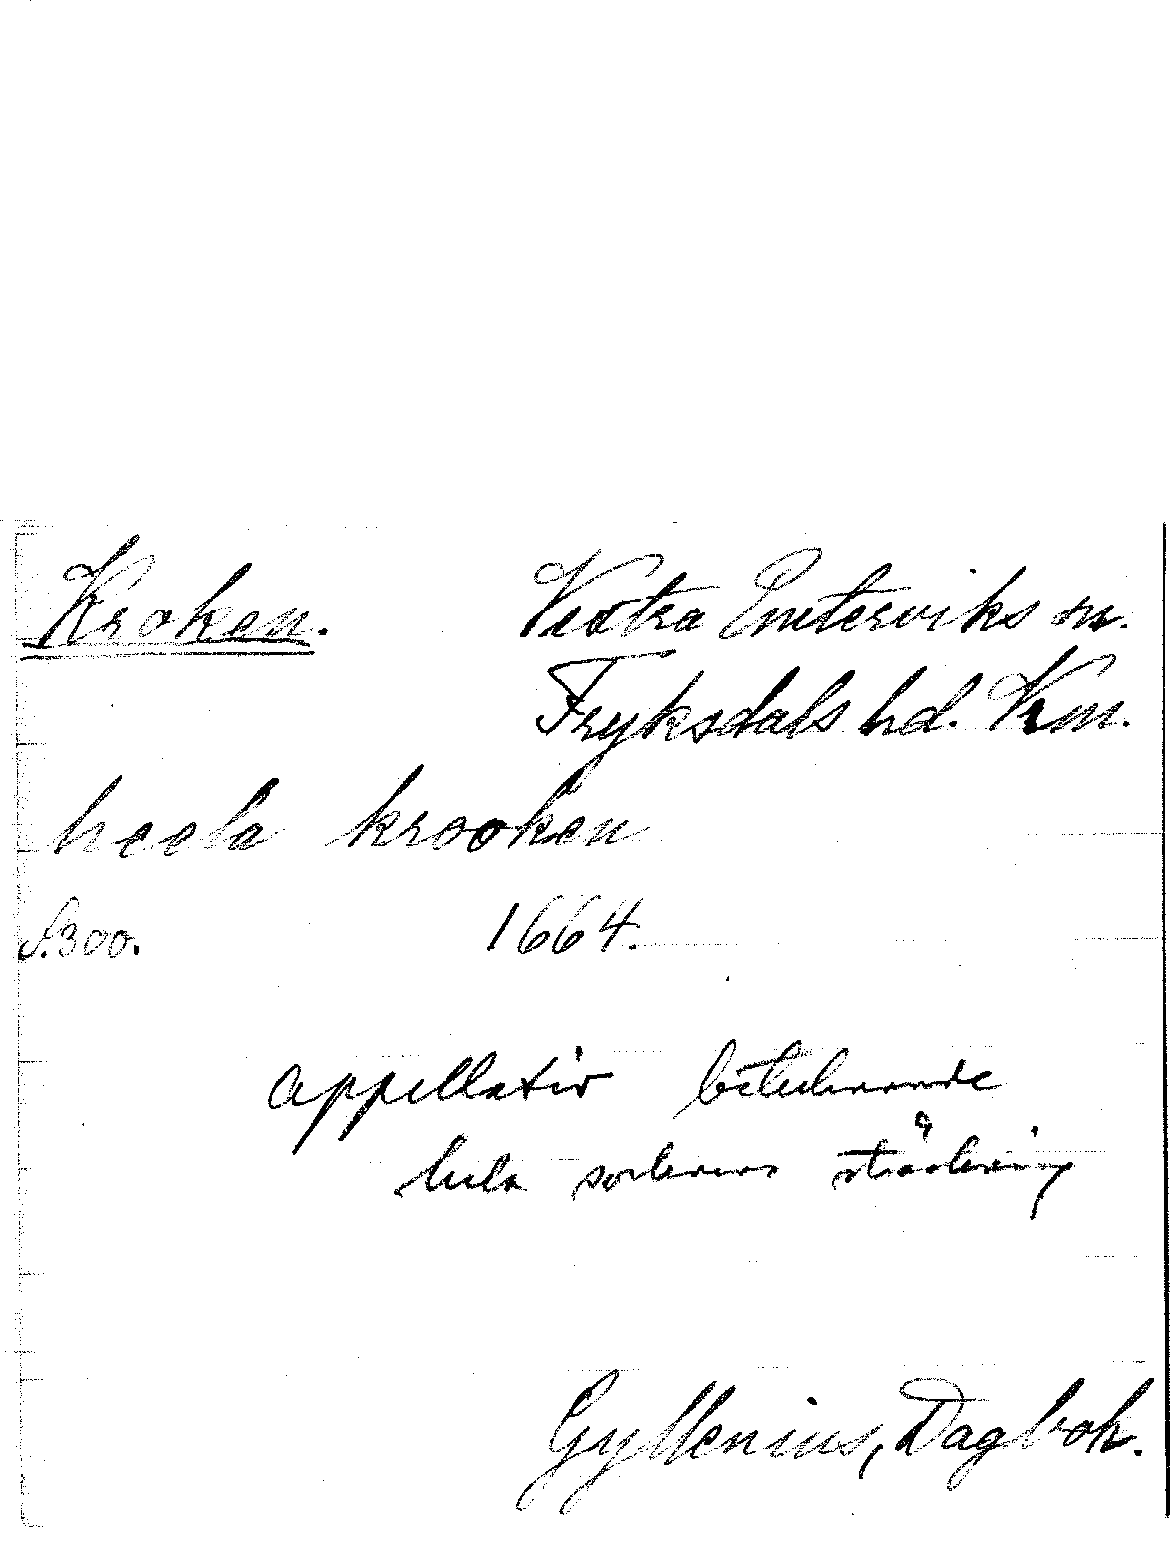 Kroken. Västra Emterviks sn.
Fryksdals hd. Vrm.
heela krooken
S. 300. 1664.
appellativ betecknande
hela socknens sträckning
Gyllenius, Dagbok.